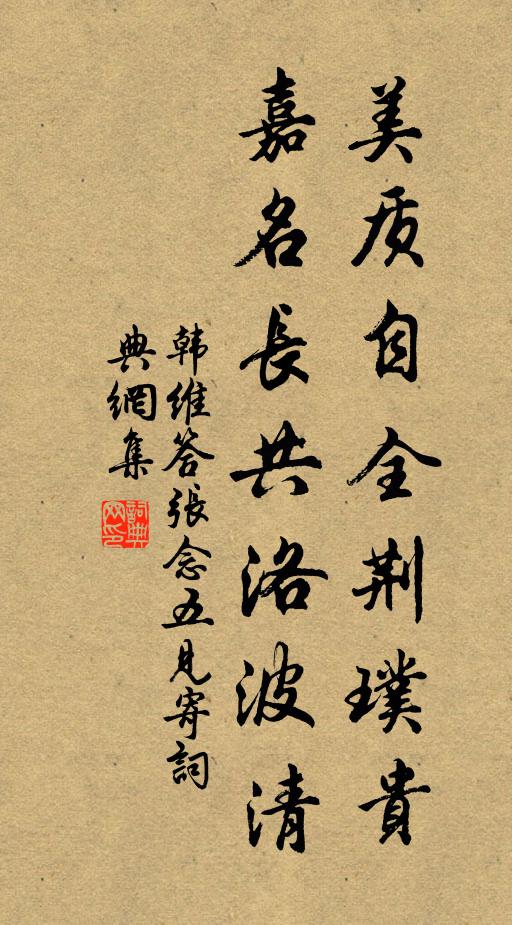 美质自全荆璞貴
嘉名長共洛波清
韩維答張念五見寄詞
典網集
詞典網印